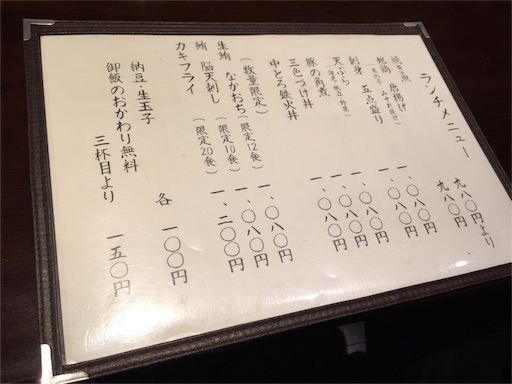 ランチメニュー
焼き魚 九八〇円より
地鶏 唐揚げ 九八〇円
刺身 五点盛り 一、〇八〇円
天ぷら 一、〇八〇円
豚の角煮 一、〇八〇円
三色づけ丼 一、〇八〇円
中とろ鉄火丼
(数量限定)
生鮪 なかおち (限定12食) 一、〇八〇円
鮪 脳天刺し (限定10食) 一、〇八〇円
カキフライ (限定20食) 一、二〇〇円
納豆・生玉子 各 一〇〇円
御飯のおかわり無料
三杯目より 一五〇円